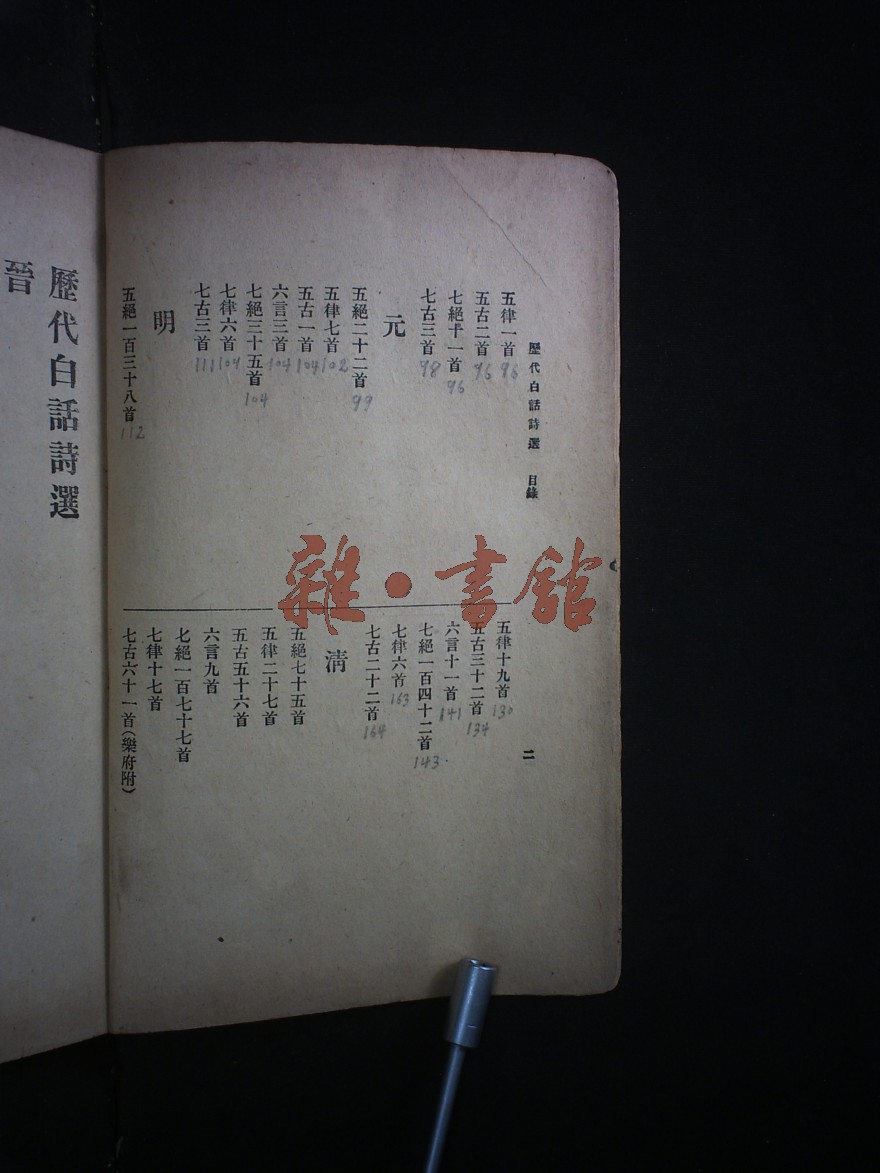 歷代白話詩選 目錄
二
五律一首 96
五古二首 96
七絕十一首 96
七古三首 98
元
五絕二十二首 99
五律七首 102
五古一首 104
六言三首 104
七絕三十五首 104
七律六首 109
七古三首 111
明
五絕一百三十八首 112
五律十九首 130
五古三十二首 134
六言十一首 141
七絕一百四十二首 143
七律六首 163
七古二十二首 164
清
五絕七十五首
五律二十七首
五古五十六首
六言九首
七絕一百七十七首
七律十七首
七古六十一首(樂府附)
歷代白話詩選
晉
雜·書館